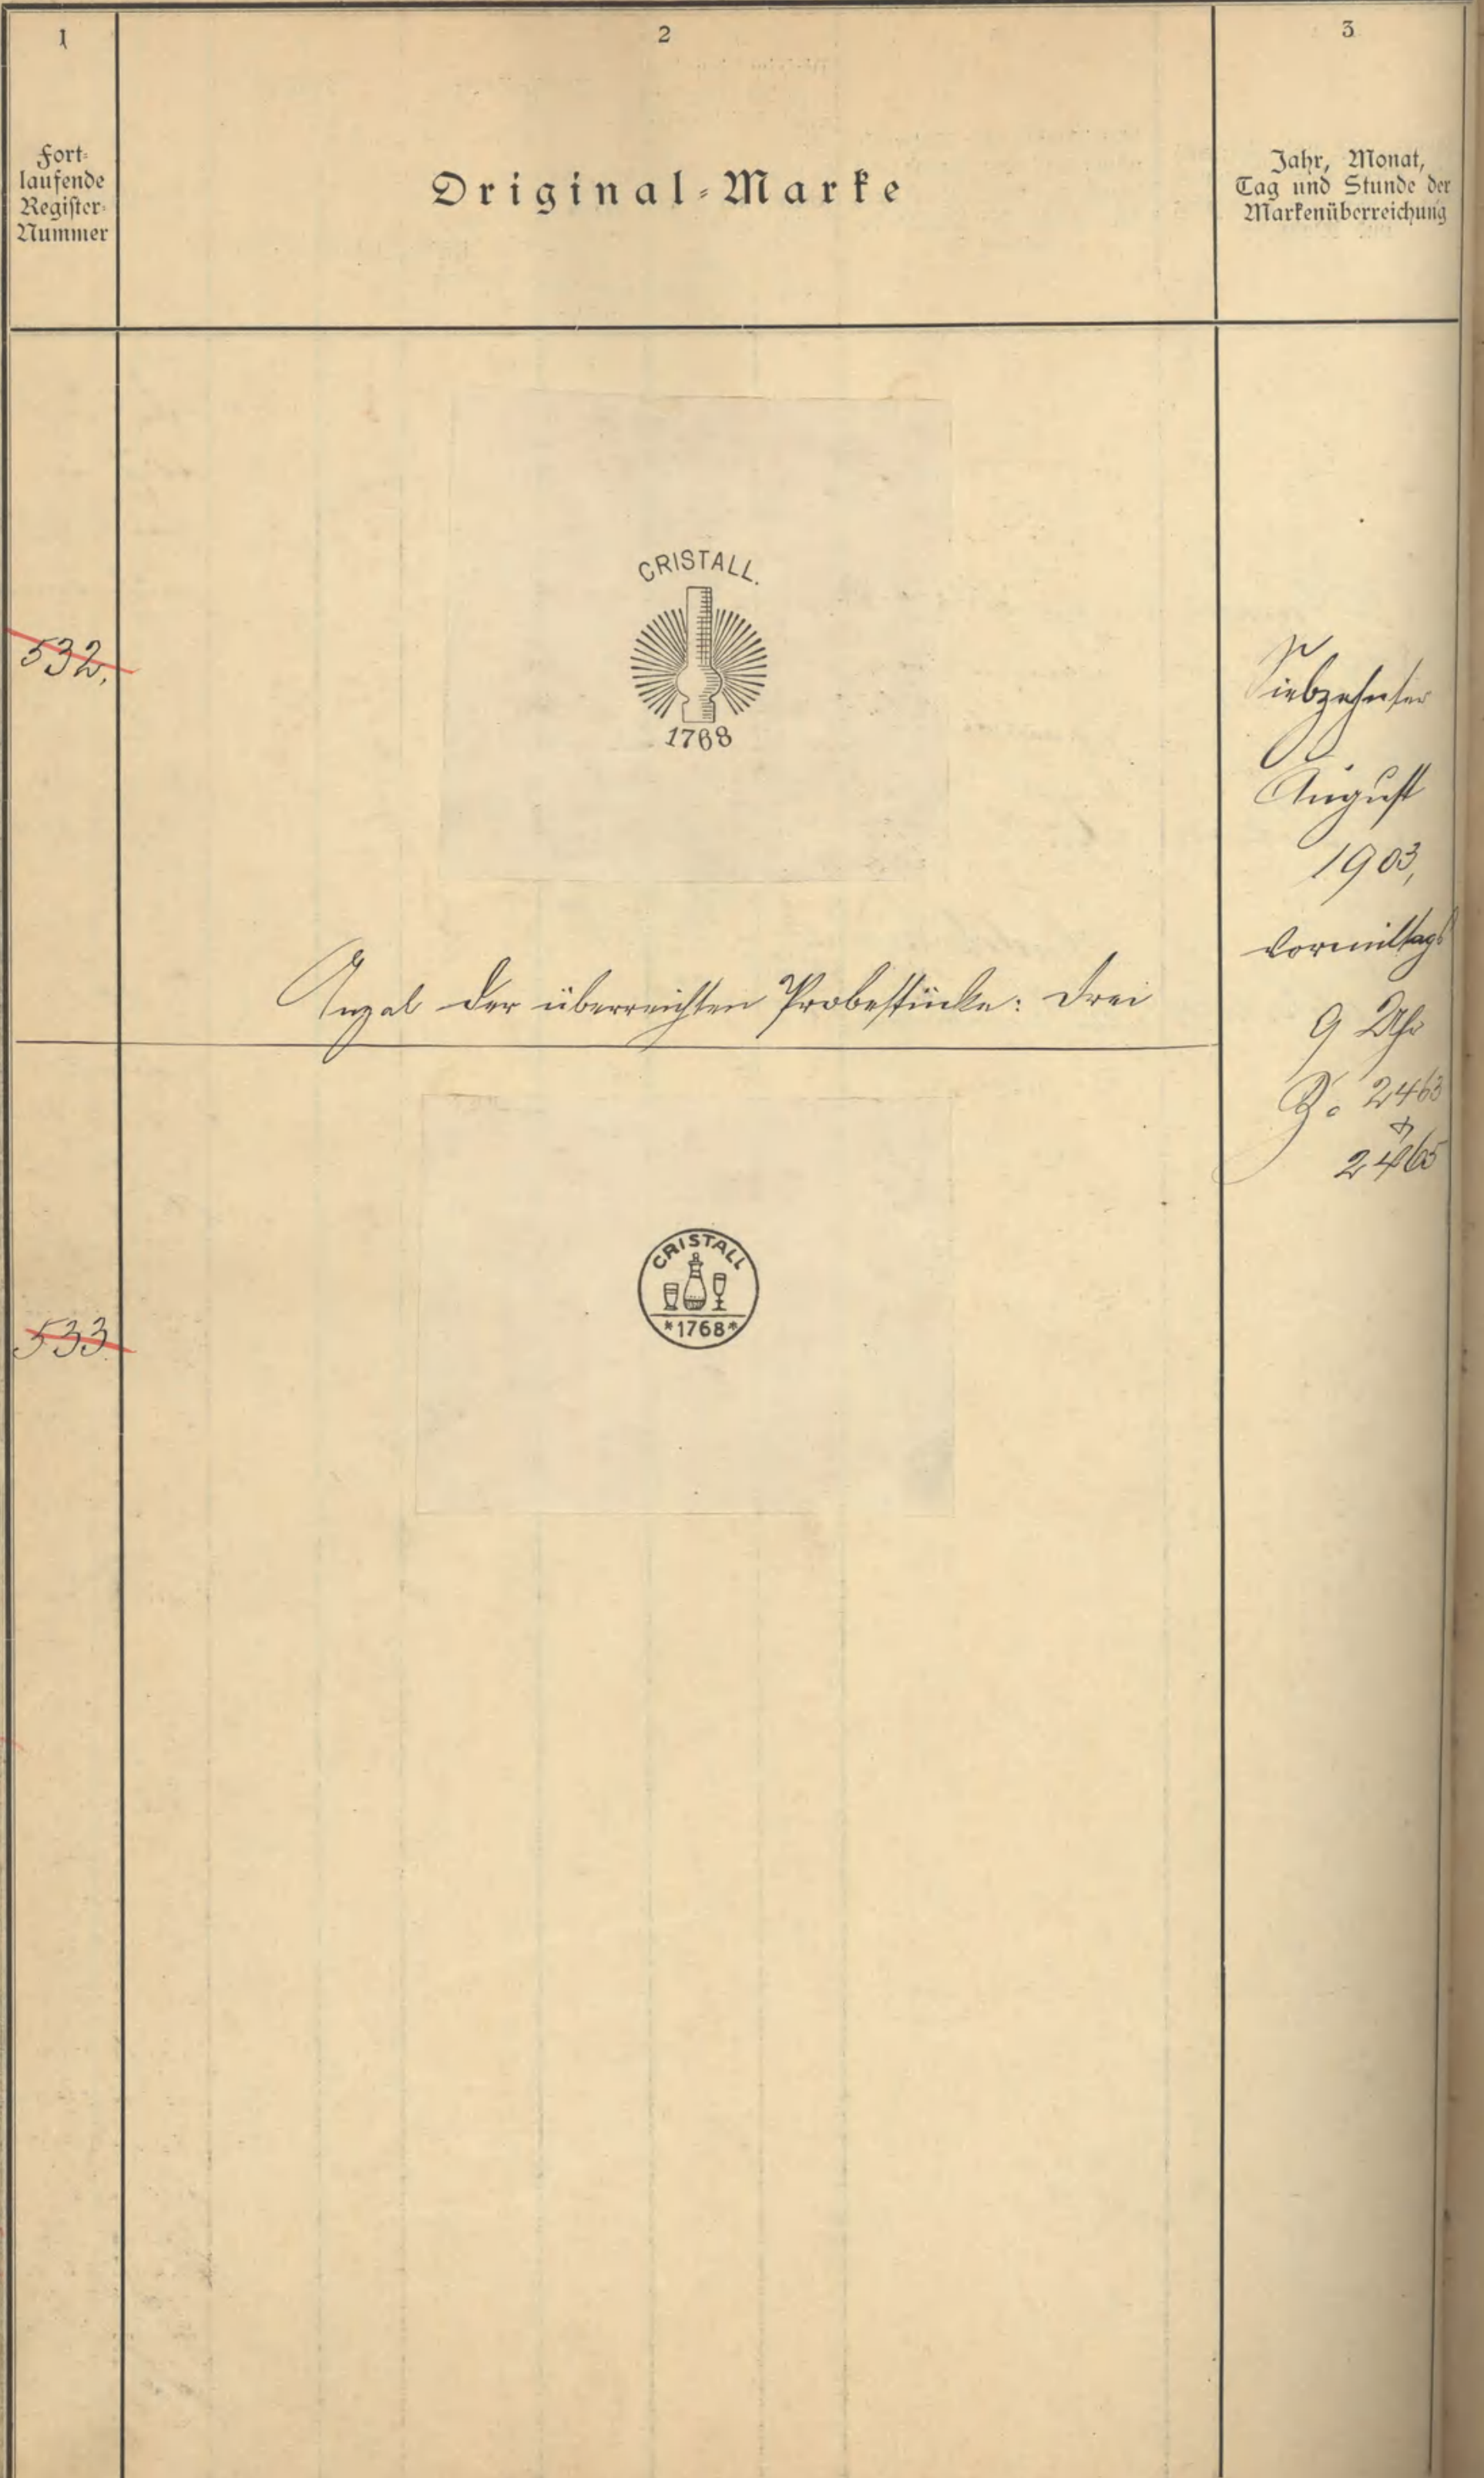 1
2
3
Fort-
laufende
Register-
Nummer
Original-Marke
Jahr, Monat,
Tag und Stunde der
Markenüberreichung
532.
CRISTALL.
1768
Anzal der überreichten Probestücke: drei
Siebzehnter
August
1903,
vormittags
9 Uhr
Z. 2463
2465
533.
CRISTALL
*1768*